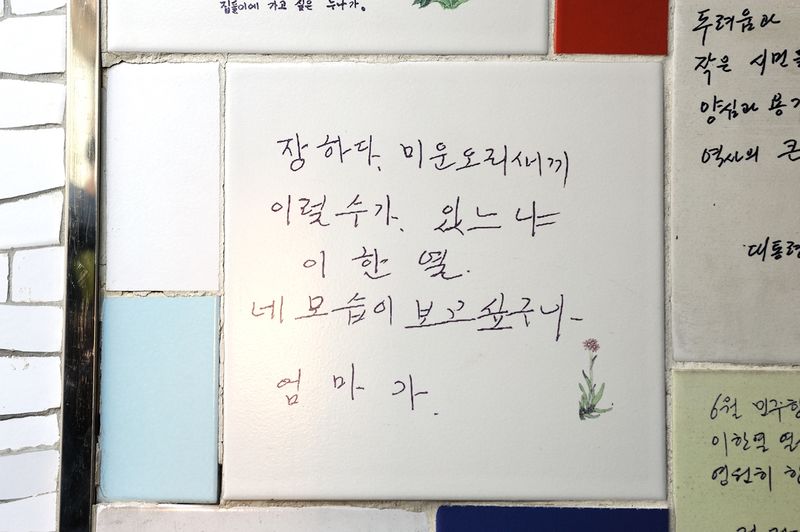 집들이에 가고 싶은 누나가.
장하다. 미운오리새끼
이럴 수가. 있느냐
이 한 열.
네 모습이 보고싶구나-
엄 마 가.
두려움과
작은 시민을
양심과 용기
역사의 큰
대통령
6월 민주항
이한열 열
영원히